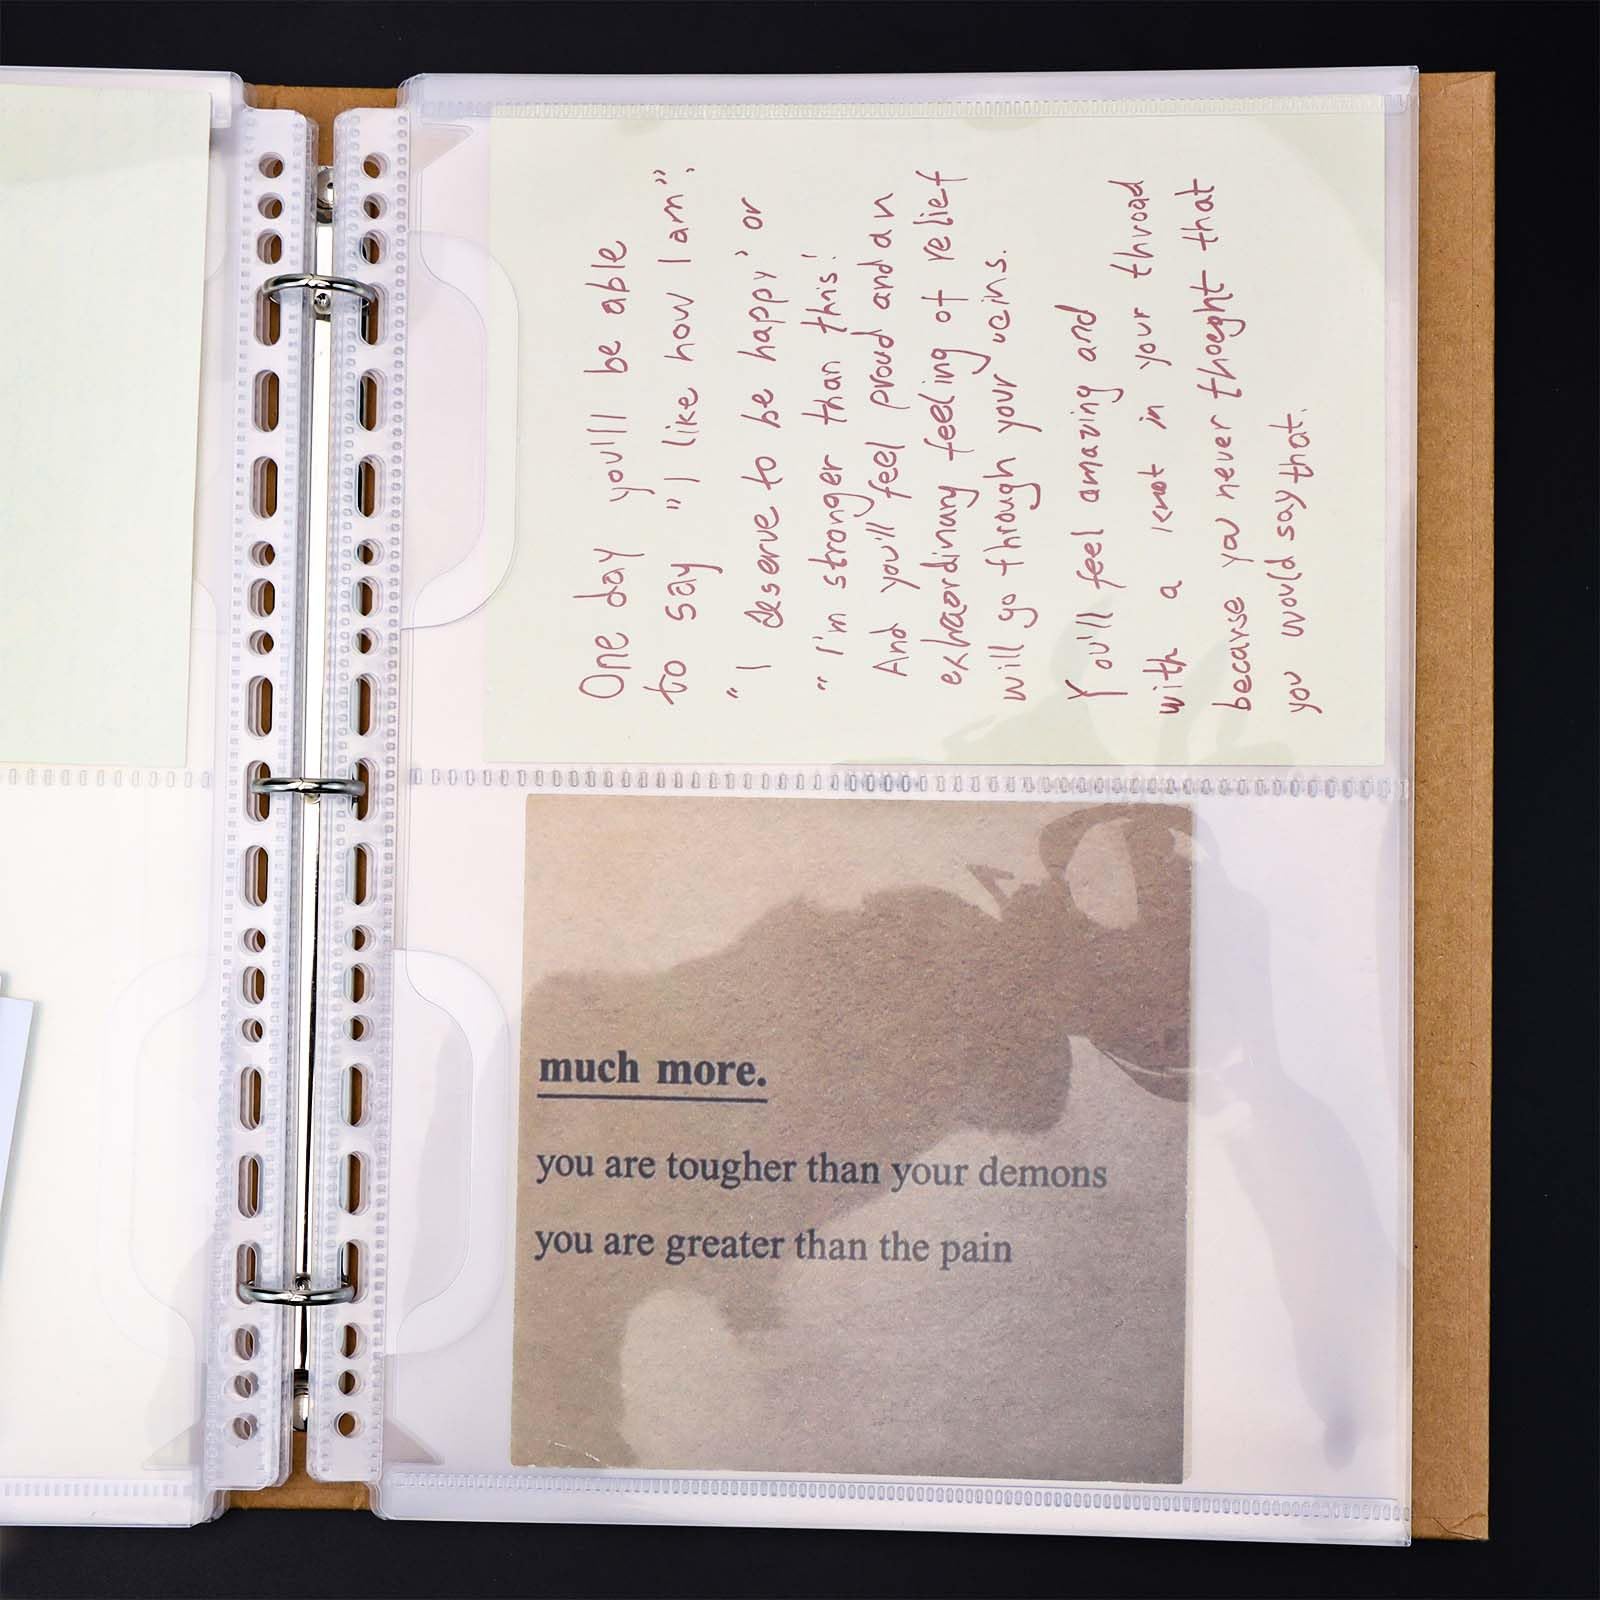 One day you'll be able
to say "I like how I am".
"I deserve to be happy" or
"I'm stronger than this!
And you'll feel proud and an
extraordinary feeling of relief
will go through your veins.
You'll feel amazing and
with a knot in your throad
because you never thoeght that
you would say that.
much more.
you are tougher than your demons
you are greater than the pain